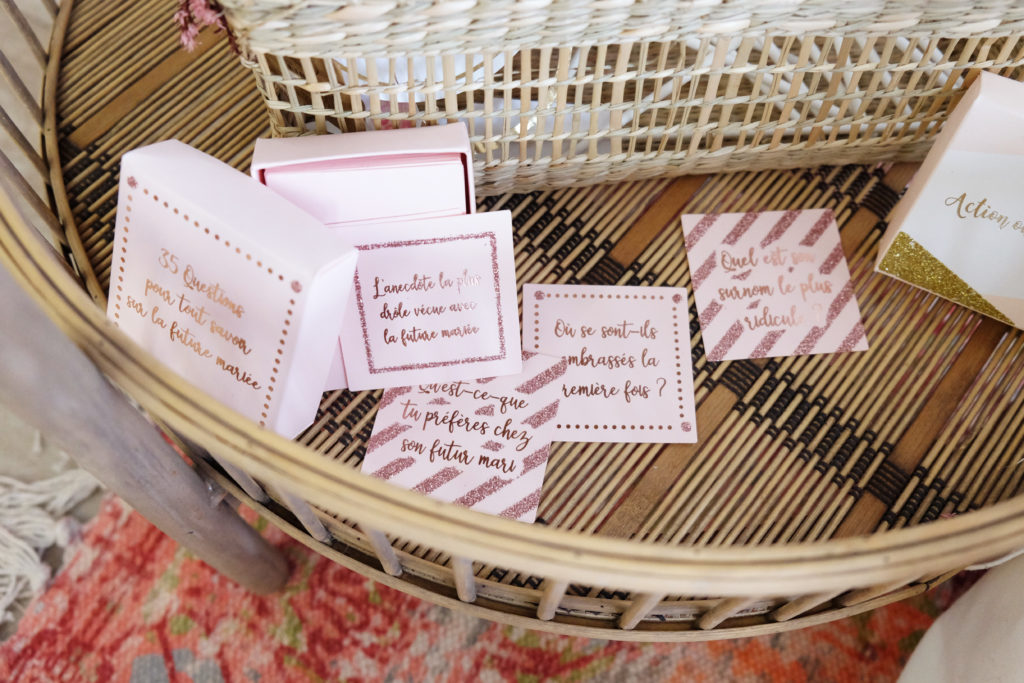 35 Questions
pour tout savoir
sur la future mariée
L'anecdote la plus
drôle vécue avec
la future mariée
Qu'est-ce-que
tu préfères chez
son futur mari
Où se sont-ils
embrassés la
première fois ?
Quel est son
surnom le plus
ridicule ?
Action